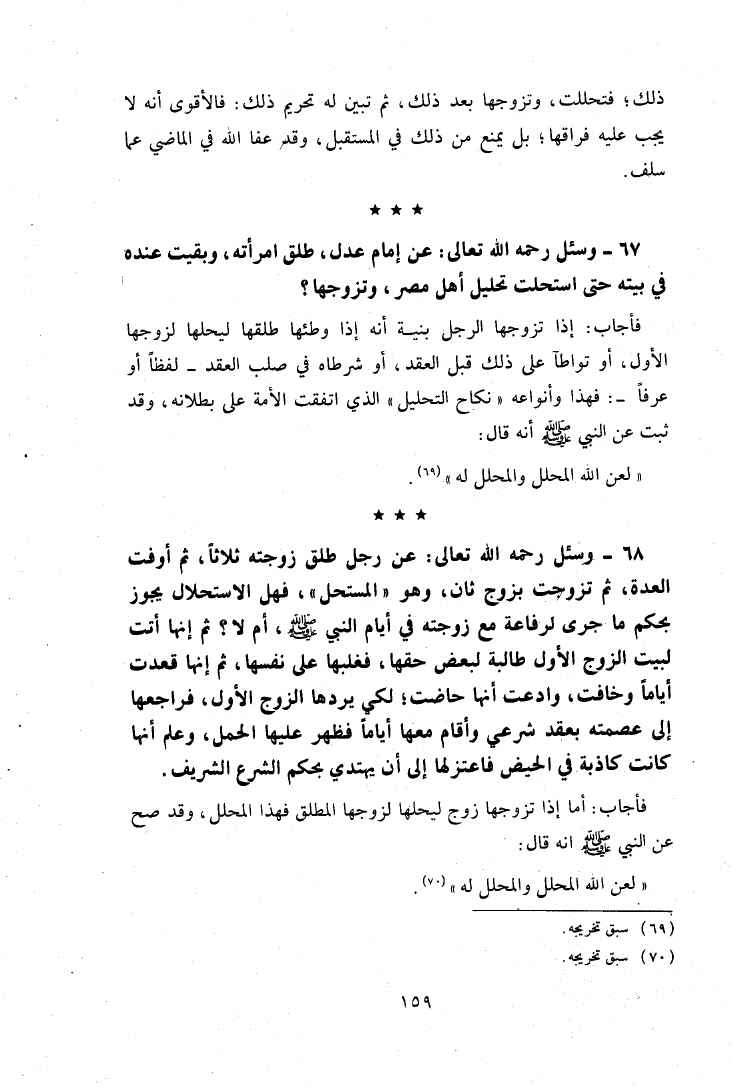 ذلك؛ فتحللت، وتزوجها بعد ذلك، ثم تبين له تحريم ذلك: فالأقوى أنه لا
يجب عليه فراقها؛ بل يمنع من ذلك في المستقبل، وقد عفا الله في الماضي عما
سلف.
★ ★ ★
٦٧ ـ وسئل رحمه الله تعالى: عن إمام عدل، طلق امرأته، وبقيت عنده
في بيته حتى استحلت تحليل أهل مصر، وتزوجها؟
فأجاب: إذا تزوجها الرجل بنية أنه إذا وطئها طلقها ليحلها لزوجها
الأول، أو تواطآ على ذلك قبل العقد، أو شرطاه في صلب العقد ـ لفظاً أو
عرفاً ـ: فهذا وأنواعه «نكاح التحليل» الذي اتفقت الأمة على بطلانه، وقد
ثبت عن النبي ﷺ أنه قال:
«لعن الله المحلل والمحلل له»(٦٩).
★ ★ ★
٦٨ ـ وسئل رحمه الله تعالى: عن رجل طلق زوجته ثلاثاً، ثم أوفت
العدة، ثم تزوجت بزوج ثان، وهو «المستحل»، فهل الاستحلال يجوز
بحكم ما جرى لرفاعة مع زوجته في أيام النبي ﷺ، أم لا؟ ثم إنها أتت
لبيت الزوج الأول طالبة لبعض حقها، فغلبها على نفسها، ثم إنها قعدت
أياماً وخافت، وادعت أنها حاضت؛ لكي يردها الزوج الأول، فراجعها
إلى عصمته بعقد شرعي وأقام معها أياماً فظهر عليها الحمل، وعلم أنها
كانت كاذبة في الحيض فاعتزلها إلى أن يهتدي بحكم الشرع الشريف.
فأجاب: أما إذا تزوجها زوج ليحلها لزوجها المطلق فهذا المحلل، وقد صح
عن النبي ﷺ انه قال:
«لعن الله المحلل والمحلل له»(٧٠).
(٦٩) سبق تخريجه.
(٧٠) سبق تخريجه.
١٥٩